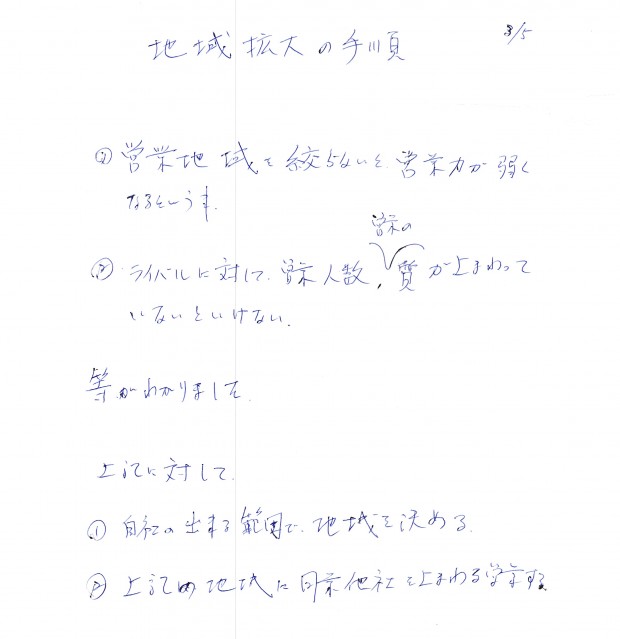 3/5
地域拡大の手順
② 営業地域を絞らないと、営業力が弱く
なるという事。
③ ライバルに対して、営業人数、営業の質が上まわって
いないといけない。
等がわかりました。
上記に対して、
① 自社の出来る範囲で、地域を決める。
② 上記の地域に同業他社を上まわる営業する。